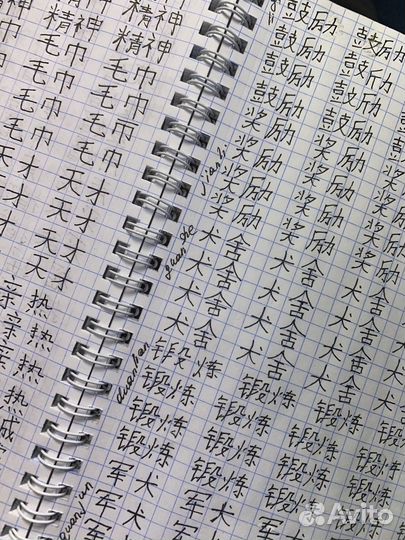 精神 精神
精神 精神
毛巾 毛巾
毛巾 毛巾
毛巾 毛巾
毛巾 毛巾
天才 天才
天才 天才
天才
天才
亲热
亲热
亲热
热
鼓励 鼓励
鼓励 鼓励
鼓励 鼓励
鼓励 鼓励
jianli 奖励 奖励 奖励
奖励 奖励 奖励
奖励 奖励 奖励
奖励 奖励 奖励
犬舍 犬舍 犬舍
犬舍 犬舍 犬舍
犬舍 犬舍 犬舍
犬舍 犬舍 犬舍
锻炼 锻炼 锻炼
锻炼 锻炼 锻炼
锻炼 锻炼 锻炼
锻炼 锻炼 锻炼
军犬 军犬 军犬
军犬 军犬
军犬 军犬
Avito